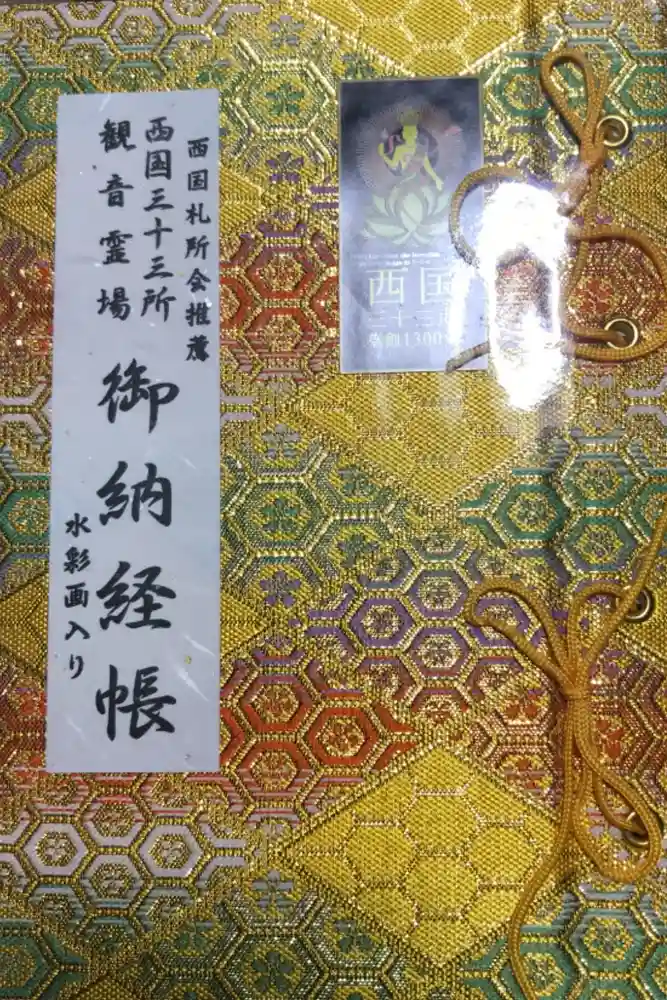 西国札所会推薦
西国三十三所
観音霊場
御納経帳
水彩画入り
西国
三十三所
草創1300